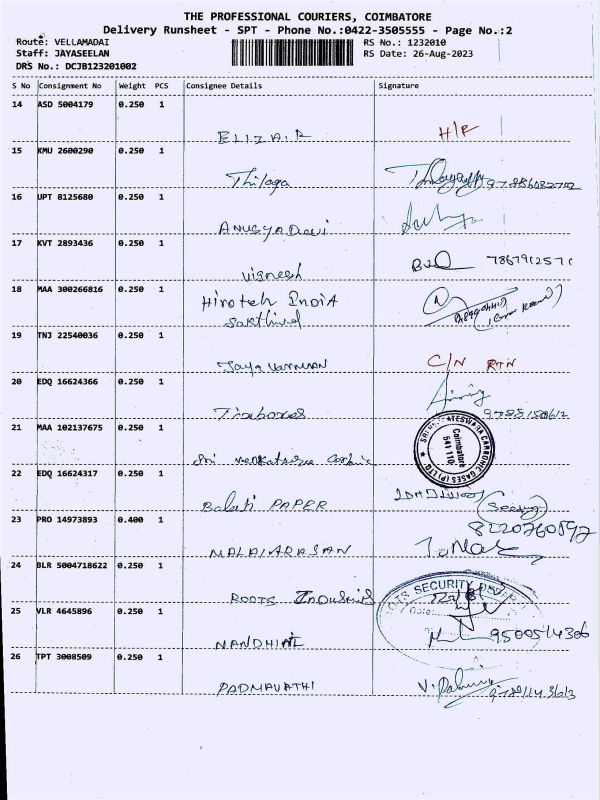 THE PROFESSIONAL COURIERS, COIMBATORE
Delivery Runsheet - SPT - Phone No.:0422-3505555 - Page No.:2
Route: VELLAMADAI RS No.: 1232010
Staff: JAYASEELAN RS Date: 26-Aug-2023
DRS No.: DCJB123201002
S No Consignment No Weight PCS Consignee Details Signature
14 ASD 5004179 0.250 1
ELIZA.R H/R
15 KMU 2600290 0.250 1
Thilaga
16 UPT 8125680 0.250 1
ANUSYA Devi
17 KVT 2893436 0.250 1
vignesh
18 MAA 300266816 0.250 1
Hirotech INDIA
Sakthivel
19 TNJ 22540036 0.250 1
Jaya varman C/N RTN
20 EDQ 16624366 0.250 1
21 MAA 102137675 0.250 1
Sri venkateswara Carbonic
SRI VENKATESWARA CARBONIC GASES (P) LTD.
Coimbatore
641 110
22 EDQ 16624317 0.250 1
Balaji PAPER
23 PRO 14973893 0.400 1
MALAIARASAN
24 BLR 5004718622 0.250 1
ROOTS Industries
SECURITY
Date:
25 VLR 4645896 0.250 1
NANDHINI
26 TPT 3008509 0.250 1
PADMAVATHI